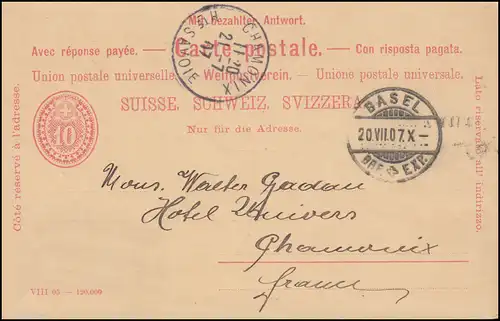 Mit bezahlter Antwort.
Avec réponse payée. — Carte postale. — Con risposta pagata.
Union postale universelle. Weltpostverein. Unione postale universale.
SUISSE. SCHWEIZ. SVIZZERA.
Nur für die Adresse.
Côté réservé à l'adresse.
10
Lato riservato all' indirizzo.
CHAMONIX
HTE SAVOIE
BASEL
20.VII.07.X–
BRF. EXP.
Mons. Walter Gadau
Hotel Univers
Chamonix
france
VIII 05 — 120,000